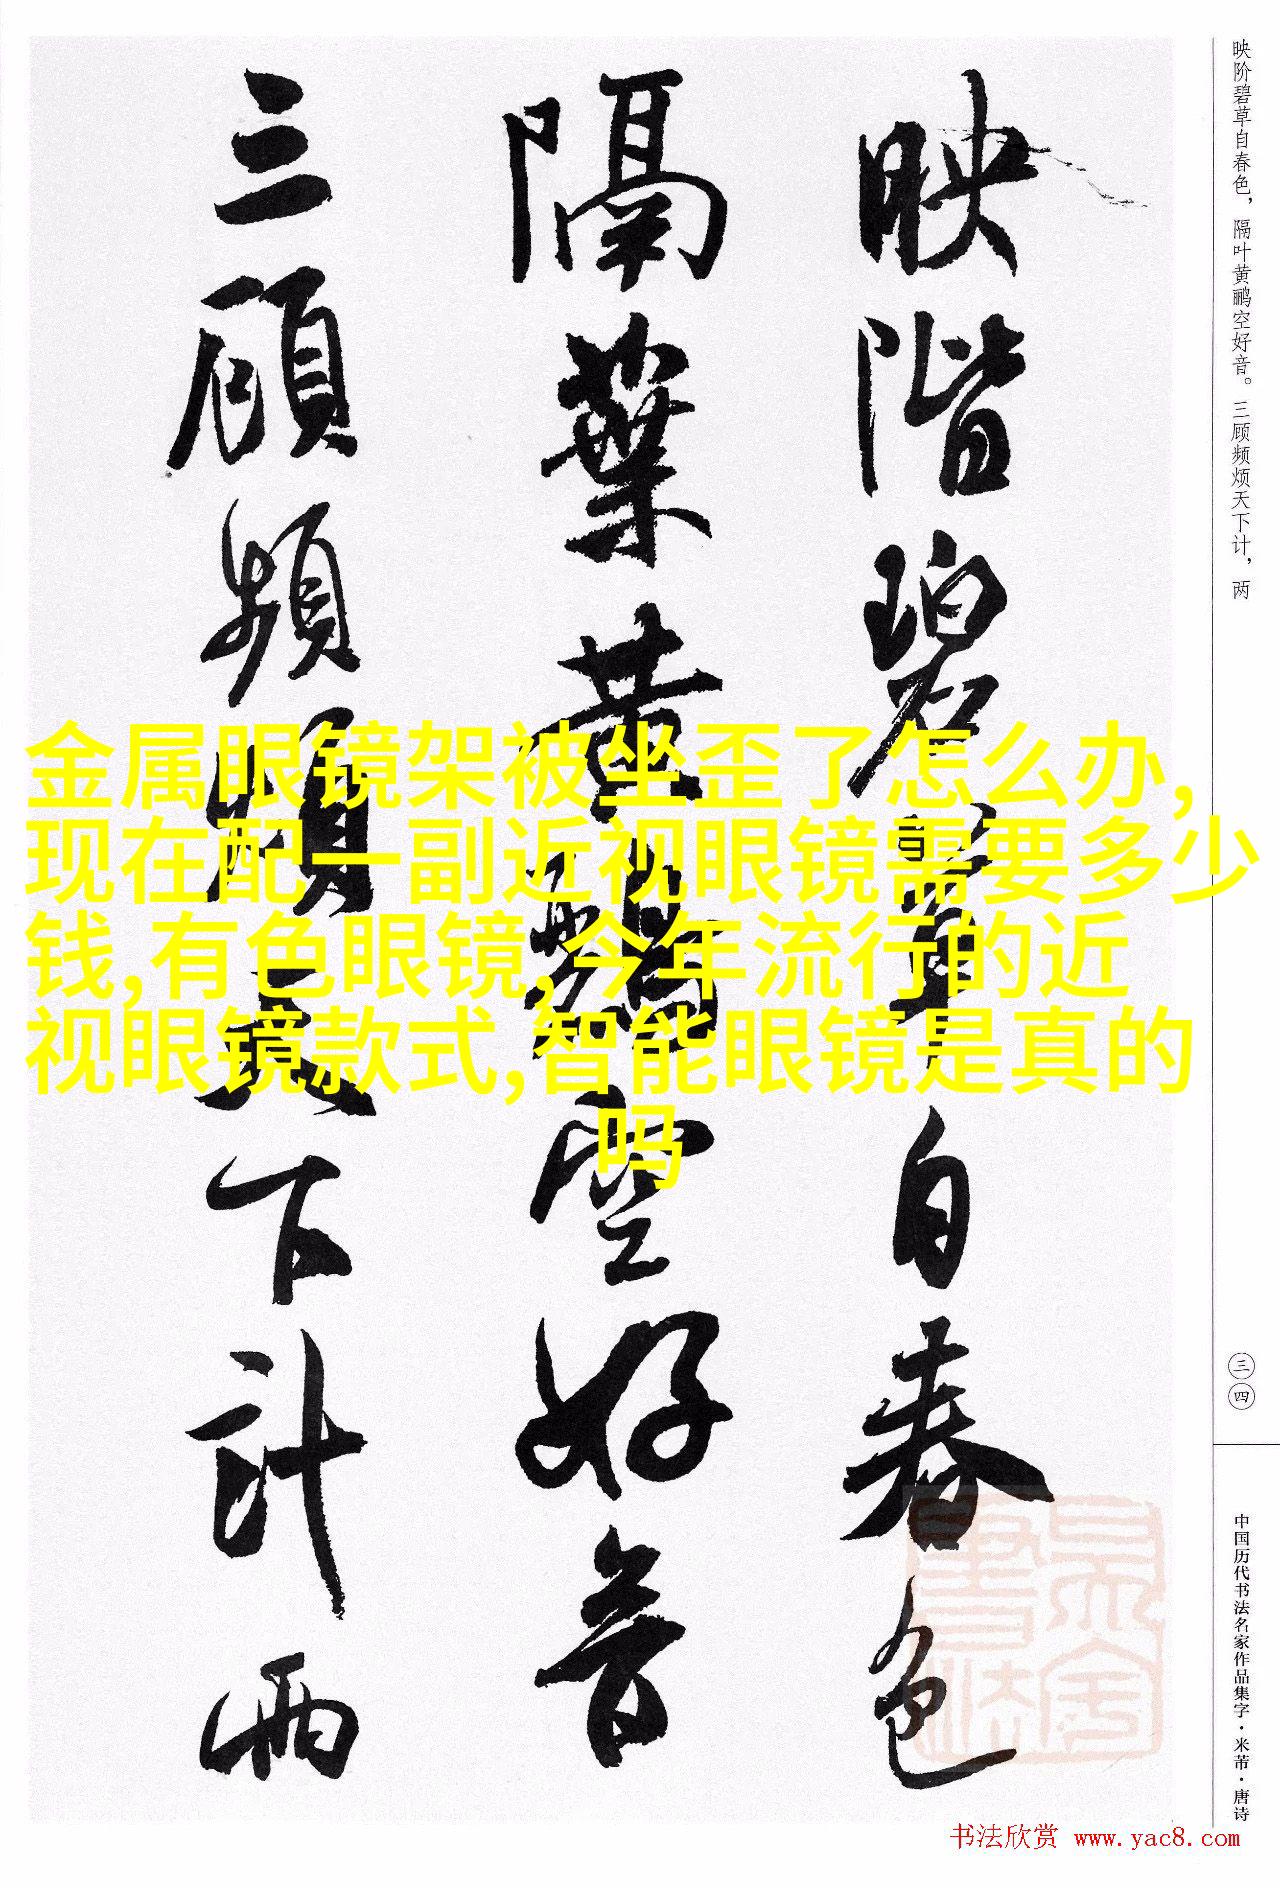 映阶碧草自春色，隔叶黄鹂空好音。三顾频烦天下计，两
映階碧草自春色
隔葉黄鸝空好音
三顧頻煩天下計兩
金属眼镜架被坐歪了怎么办,
现在配一副近视眼镜需要多少
钱,有色眼镜,今年流行的近
视眼镜款式,智能眼镜是真的
吗
三四
中国历代书法名家作品集字·米芾·唐诗
书法欣赏 www.yac8.com